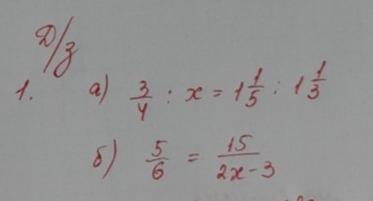 Д/з
1. а) 3/4 : x = 1 1/5 : 1 1/3
б) 5/6 = 15/2x-3